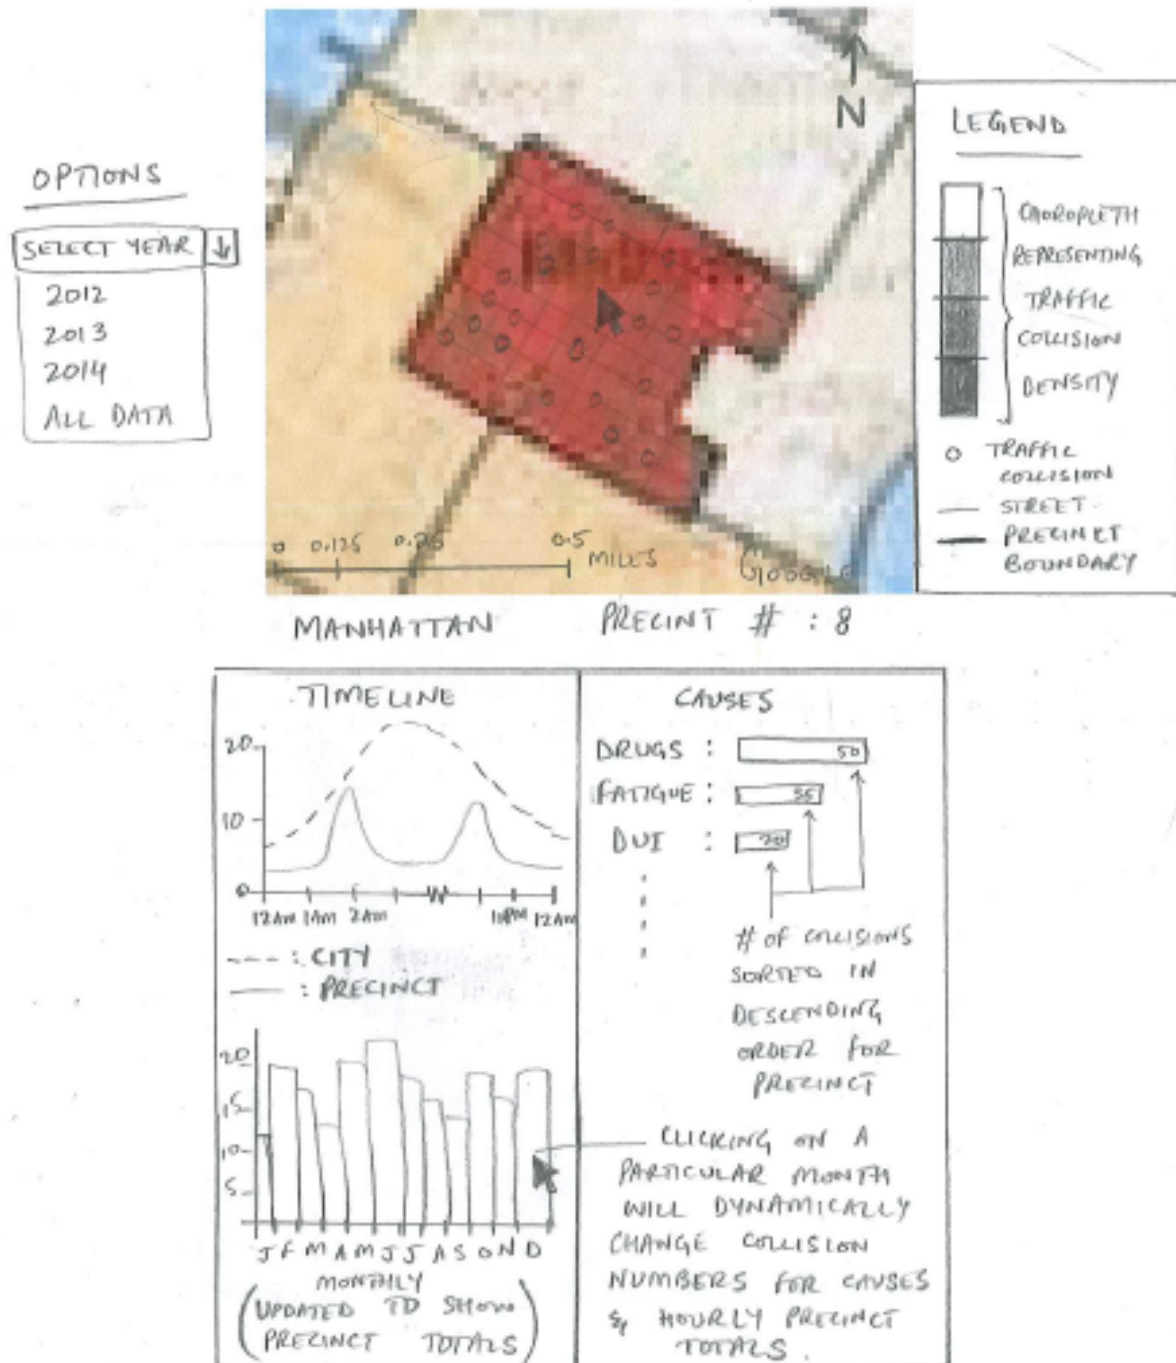 N
OPTIONS
SELECT YEAR
2012
2013
2014
ALL DATA
LEGEND
CHOROPLETH
REPRESENTING
TRAFFIC
COLLISION
DENSITY
TRAFFIC
COLLISION
STREET
PRECINCT
BOUNDARY
0 0.125 0.25 0.5
MILES
Google
MANHATTAN PRECINT # : 8
TIMELINE
20
10
0
12AM 1AM 2AM 11PM 12AM
--- : CITY
— : PRECINCT
20
15
10
5
J F M A M J J A S O N D
MONTHLY
(UPDATED TO SHOW
PRECINCT TOTALS)
CAUSES
DRUGS : 50
FATIGUE : 35
DUI : 20
# OF COLLISIONS
SORTED IN
DESCENDING
ORDER FOR
PRECINCT
CLICKING ON A
PARTICULAR MONTH
WILL DYNAMICALLY
CHANGE COLLISION
NUMBERS FOR CAUSES
& HOURLY PRECINCT
TOTALS.